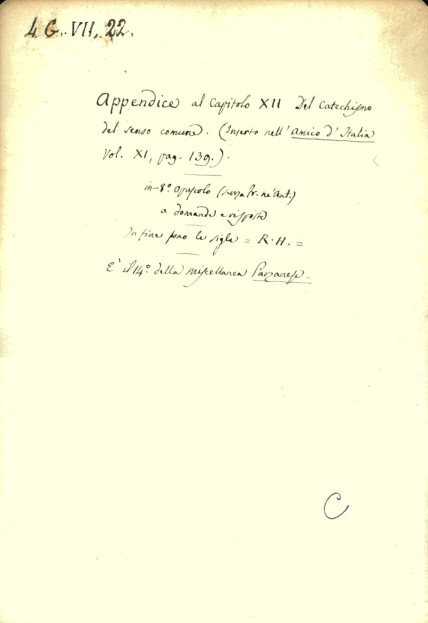 4 G. VII. 22.
Appendice al Capitolo XII Del Catechismo
del senso comune. (Inserto nell'Amico d'Italia
Vol. XI, pag. 139.).
in-8° opuscolo (senza fr. nè aut.)
a domande e risposte
In fine sono le sigle = R. H. =
E' il 14° della miscellanea Parzanese
C